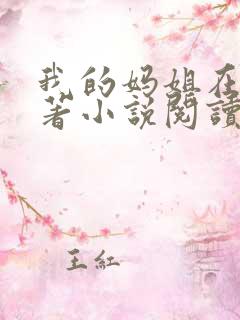 我的妈姐在
著小说閱讀
王紅